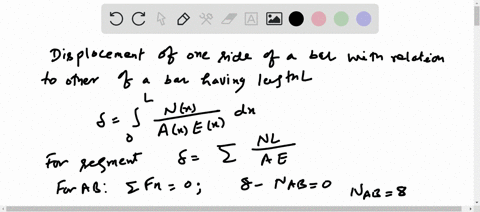 Displacement of one side of a bar with relation
to other of a bar having length L
δ = ∫₀ᴸ N(x) / A(x) E(x) dx
For segment δ = Σ NL / AE
For AB: ΣFx = 0; 8 - NAB = 0 NAB = 8